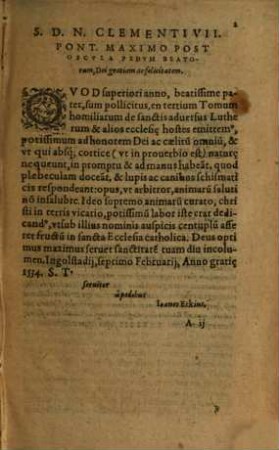 2
S. D. N. CLEMENTI VII.
PONT. MAXIMO POST
OSCULA PEDVM BEATO-
rum, Dei gratiam ac salutatem.
QVOD superiori anno, beatissime pa-
ter, sum pollicitus, en tertium Tomum
homiliarum de sanctis aduersus Luthe
rum & alios ecclesiȩ hostes emittimꝰ,
potissimum ad honorem Dei ac cœlitū omniū, &
vt qui absq; cortice (vt in prouerbio est) natare
nequeunt, in promptu & ad manus habeāt, quod
plebeculam doceāt, & lupis ac canibus schismati
cis respondeant: opus, vt arbitror, animarū saluti
nō insalubre. Ideo supremo animarū curato, chri
sti in terris vicario, potissimū labor iste erat dedi
candꝰ, vt sub illius nominis auspicis centuplū affe
ret fructū in sancta Ecclesia catholica. Deus opti
mus maximus seruet sanctitatē tuam diu incolu-
men. Ingolstadij, septimo Februarij, Anno gratiȩ
1534. S. T.
seruitor
à pedibus
Ioannes Eckius.
A ij